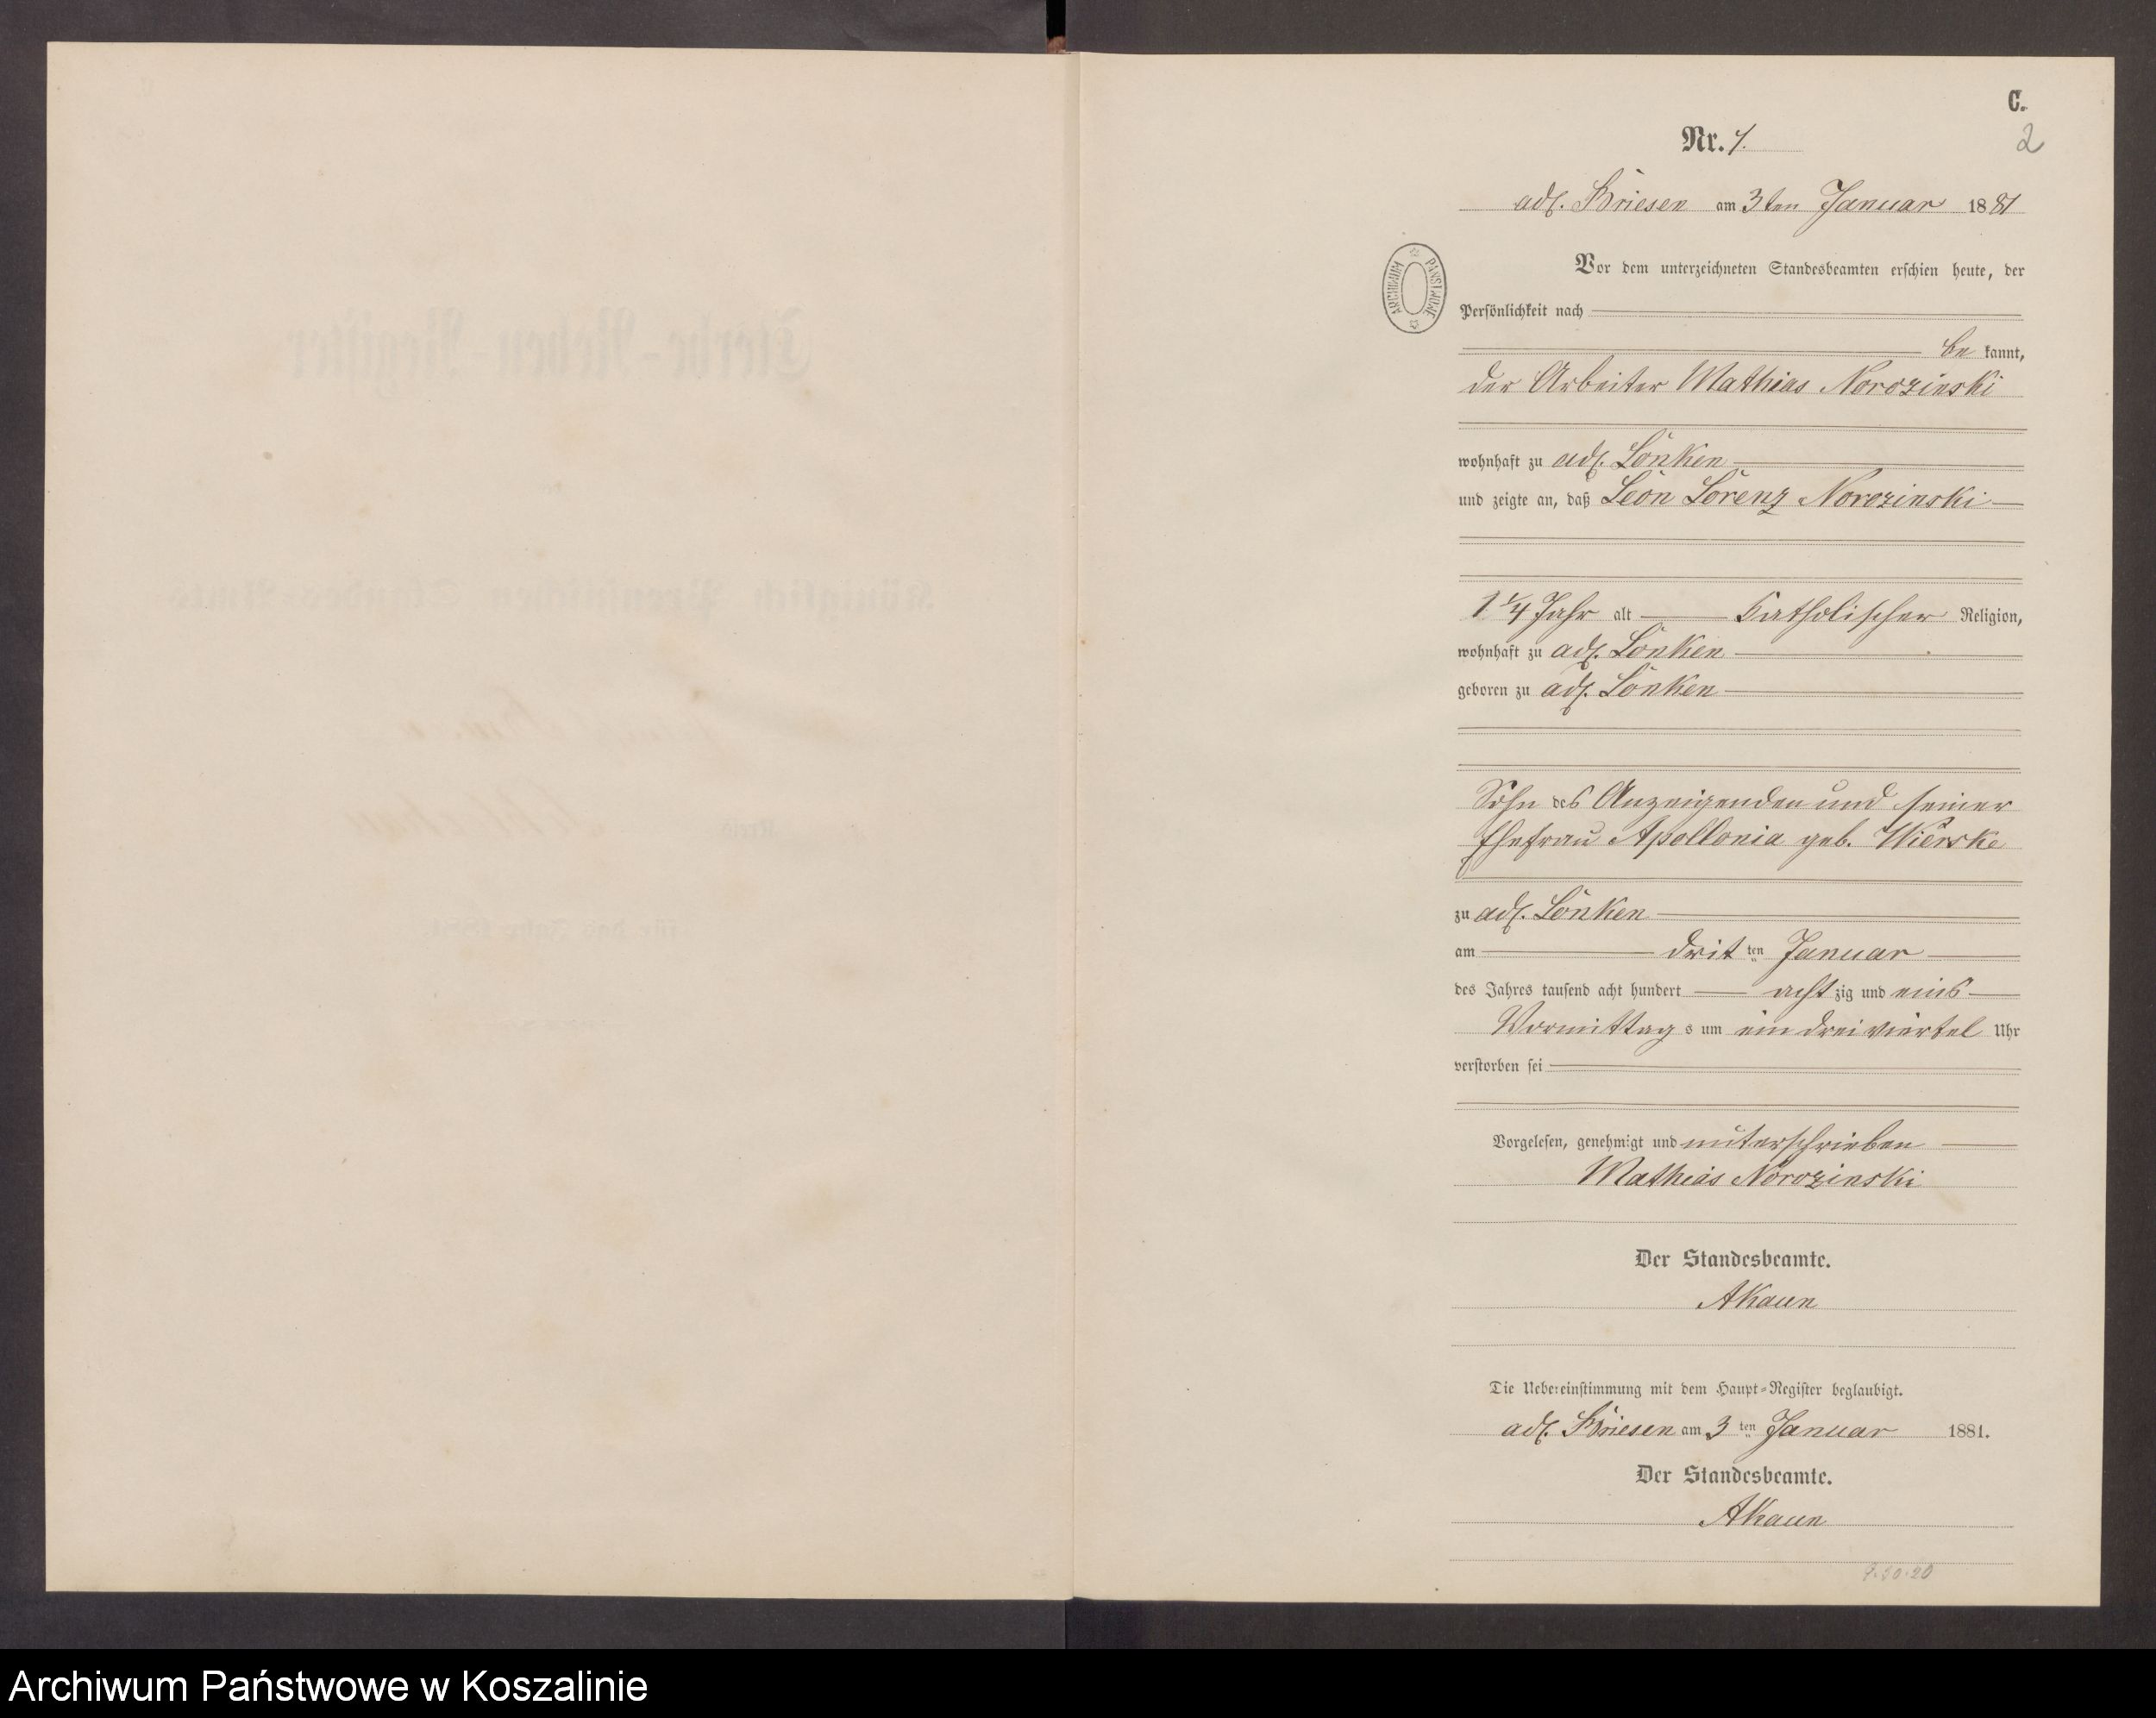 C.
2
Nr. 1.
adl. Briesen am 3ten Januar 1881
Vor dem unterzeichneten Standesbeamten erschien heute, der
Persönlichkeit nach
be kannt,
der Arbeiter Mathias Norozinski
wohnhaft zu adl. Lonken
und zeigte an, daß Leon Lorenz Norozinski
1 1/4 Jahr alt katholischer Religion,
wohnhaft zu adl. Lonken
geboren zu adl. Lonken
Sohn des Anzeigenden und seiner
Ehefrau Apollonia geb. Wierske
zu adl. Lonken
am dritten Januar
des Jahres tausend acht hundert achtzig und eins
Vormittags um ein dreiviertel Uhr
verstorben sei
Vorgelesen, genehmigt und unterschrieben
Mathias Norozinski
Der Standesbeamte.
AKaun
Die Uebereinstimmung mit dem Haupt-Register beglaubigt.
adl. Briesen am 3ten Januar 1881.
Der Standesbeamte.
AKaun
ARCHIWUM PAŃSTWOWE
Archiwum Państwowe w Koszalinie